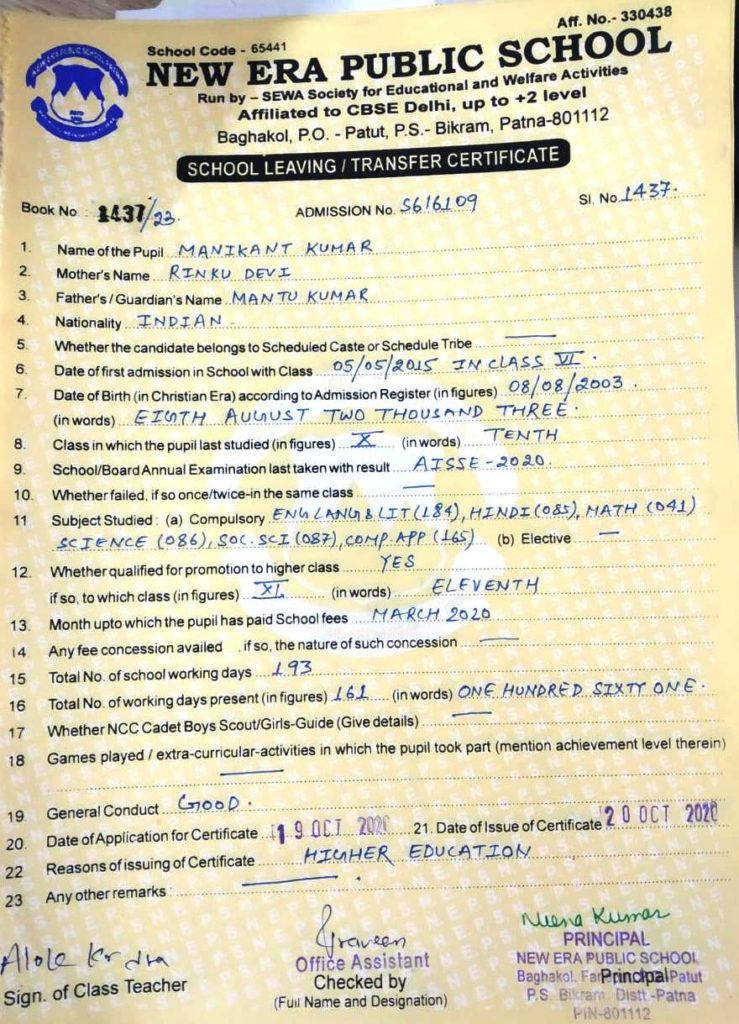 Aff. No.- 330438
School Code - 65441
NEW ERA PUBLIC SCHOOL
Run by – SEWA Society for Educational and Welfare Activities
Affiliated to CBSE Delhi, up to +2 level
Baghakol, P.O. - Patut, P.S.- Bikram, Patna-801112
SCHOOL LEAVING / TRANSFER CERTIFICATE
Book No : 1437/23. ADMISSION No. S616109 Sl. No. 1437.
1. Name of the Pupil MANIKANT KUMAR
2. Mother's Name RINKU DEVI
3. Father's / Guardian's Name MANTU KUMAR
4. Nationality INDIAN
5. Whether the candidate belongs to Scheduled Caste or Schedule Tribe —
6. Date of first admission in School with Class 05/05/2015 IN CLASS VI.
7. Date of Birth (in Christian Era) according to Admission Register (in figures) 08/08/2003.
(in words) EIGTH AUGUST TWO THOUSAND THREE.
8. Class in which the pupil last studied (in figures) X (in words) TENTH
9. School/Board Annual Examination last taken with result AISSE-2020.
10. Whether failed, if so once/twice-in the same class —
11 Subject Studied : (a) Compulsory ENG LANG & LIT (184), HINDI (085), MATH (041)
SCIENCE (086), SOC. SCI (087), COMP. APP (165) (b) Elective —
12. Whether qualified for promotion to higher class YES
if so, to which class (in figures) XI (in words) ELEVENTH
13. Month upto which the pupil has paid School fees MARCH 2020
14 Any fee concession availed , if so, the nature of such concession —
15 Total No. of school working days 193
16 Total No. of working days present (in figures) 161 (in words) ONE HUNDRED SIXTY ONE.
17 Whether NCC Cadet Boys Scout/Girls-Guide (Give details) —
18 Games played / extra-curricular-activities in which the pupil took part (mention achievement level therein)
—
19. General Conduct GOOD.
20. Date of Application for Certificate 19 OCT 2020 21. Date of Issue of Certificate 20 OCT 2020
22 Reasons of issuing of Certificate HIGHER EDUCATION
23 Any other remarks : —
Praveen
PRINCIPAL
Office Assistant NEW ERA PUBLIC SCHOOL
Sign. of Class Teacher Checked by Baghakol, Principal Patut
(Full Name and Designation) P.S. Bikram, Distt.-Patna
PIN-801112